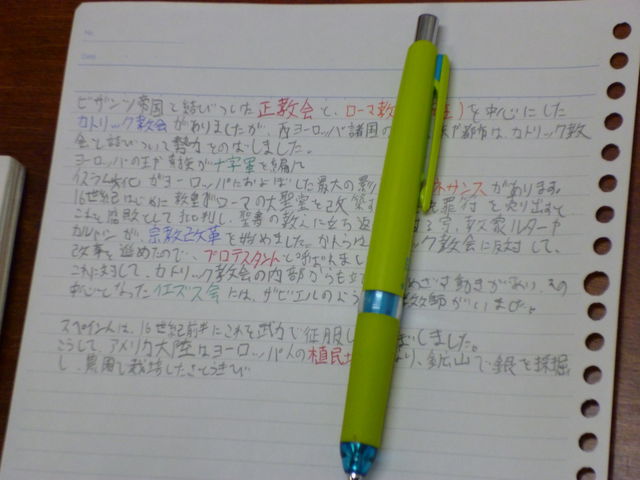 No.
Date
ビザンツ帝国と結びついた正教会と、ローマ教を中心にした
カトリック教会がありましたが、西ヨーロッパ諸国のや都市は、カトリック教
会と結びついて勢力をのばしました。
ヨーロッパの王や貴族が十字軍を編べ
イスラム文化がヨーロッパにおよぼした最大の影ネサンスがあります。
16世紀はじめに教皇がローマの大聖堂を改築す罪符を売り出すと
これを腐敗として批判し、聖書の教えに立ち返る宗教家ルターや
カルバンが、宗教改革を始めました。かれらはック教会に反対して、
改革を進めたので、プロテスタントと呼ばれまし
これに対して、カトリック教会の内部からも立めざす動きがあり、その
中心となったイエズス会には、ザビエルのよう教師がいました。
スペイン人は、16世紀前半にこれを武力で征服しました。
こうして、アメリカ大陸はヨーロッパ人の植民なり、鉱山で銀を採掘
し、農園で栽培したさとうきび